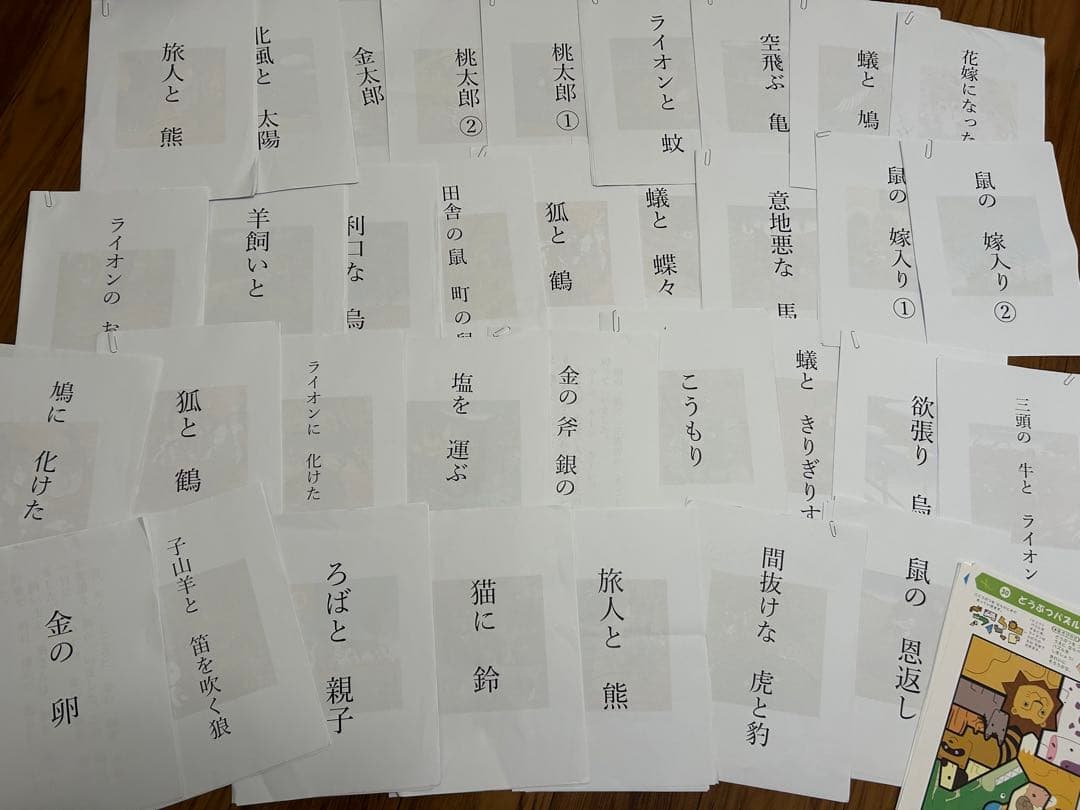 旅人と 熊
北風と 太陽
金太郎
桃太郎②
桃太郎①
ライオンと 蚊
空飛ぶ 亀
蟻と 鳩
花嫁になった
ライオンの お
羊飼いと
利口な 烏
田舎の鼠 町の鼠
狐と 鶴
蟻と 蝶々
意地悪な 馬
鼠の 嫁入り①
鼠の 嫁入り②
鳩に 化けた
狐と 鶴
ライオンに 化けた
塩を 運ぶ
金の斧 銀の
こうもり
蟻と きりぎりす
欲張り 烏
三頭の 牛と ライオン
金の 卵
子山羊と 笛を吹く狼
ろばと 親子
猫に 鈴
旅人と 熊
間抜けな 虎と豹
鼠の 恩返し
30 どうぶつパズル